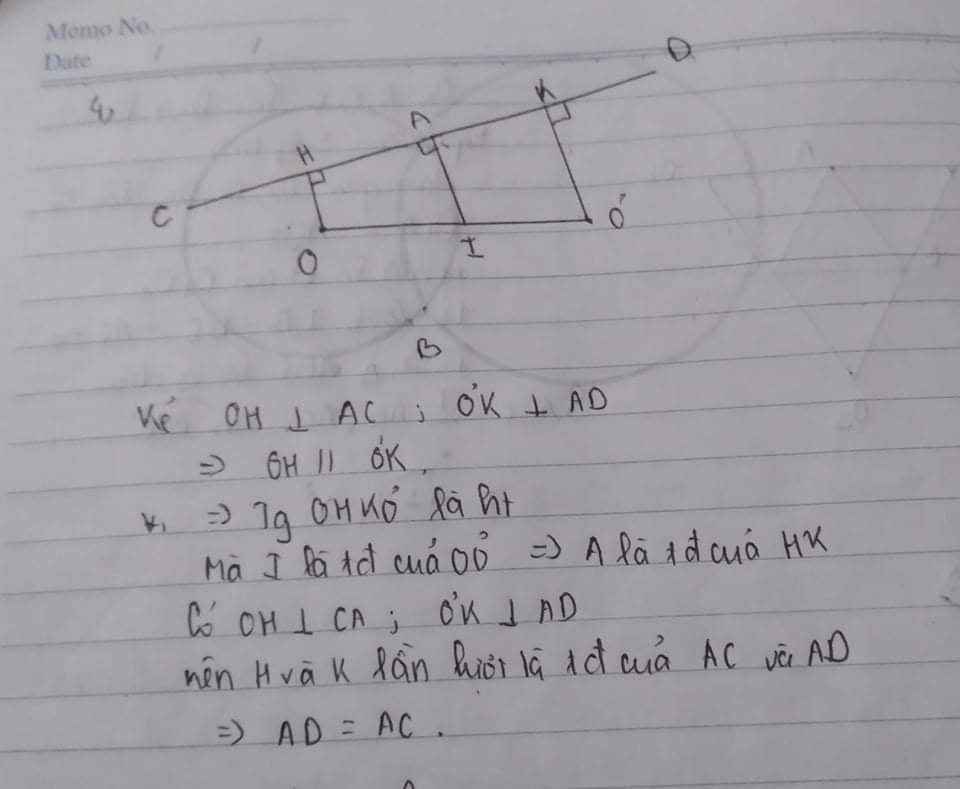 Memo No.
Date / /
D
K
A
H
C
O'
O
I
B
Kẻ OH ⊥ AC ; O'K ⊥ AD
=> OH // O'K.
=> Tg OHKO' là ht
Mà I là tđ của OO' => A là tđ của HK
Có OH ⊥ CA ; O'K ⊥ AD
nên H và K lần lượt là tđ của AC và AD
=> AD = AC .